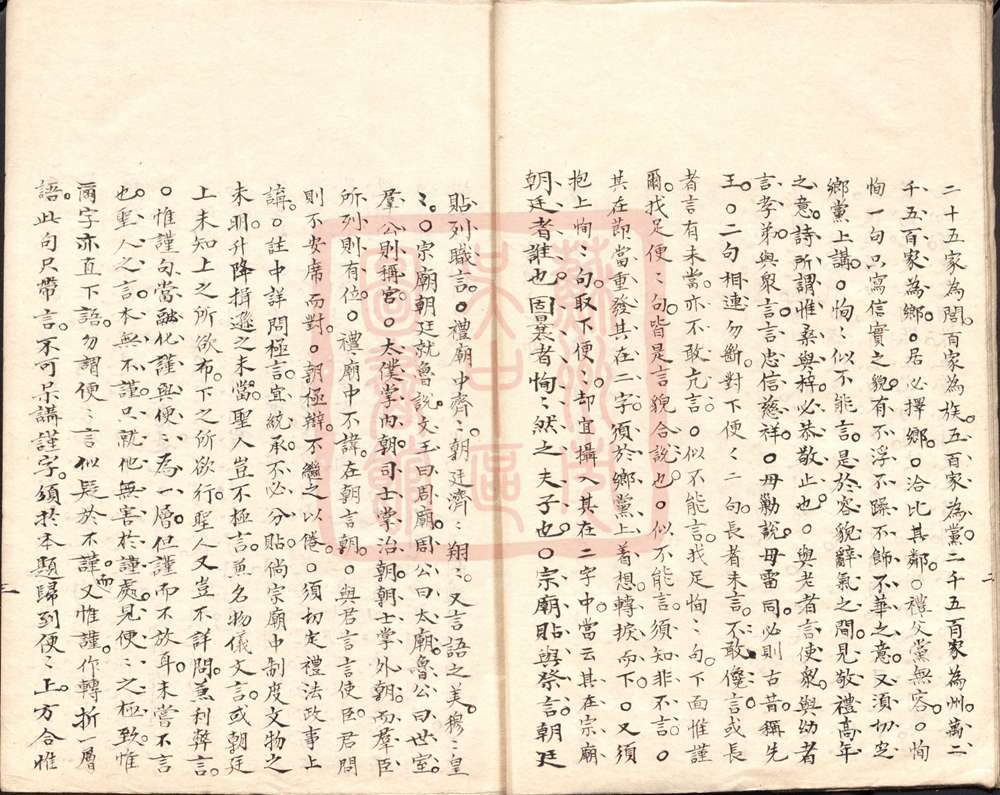 二十五家為閭。百家為族。五百家為黨。二千五百家為州。萬二
千五百家為鄉。○居必擇鄉。○洽比其鄰。○禮父黨無容。○恂
恂一句只寫信實之貌。有不浮不躁不飾不華之意。又須切定
鄉黨上講。○恂〻似不能言。是於容貌辭氣之間。見敬禮高年
之意。詩所謂惟桑與梓。必恭敬止也。○與老者言使眾。與幼者
言孝弟。與眾言言忠信慈祥。○毋勦說。毋雷同。必則古昔稱先
王。○二句相連勿斷。對下便〻二句。長者未言。不敢儳言。或長
者言有未當。亦不敢亢言。○似不能言。找足恂〻句。下面惟謹
爾。找足便〻句。皆是言貌合說也。○似不能言。須知非不言。○
其在節當重發其在二字。須於鄉黨上著想轉捩而下。○又須
抱上恂〻句。取下便〻。却宜攝入其在二字中。當云其在宗廟
朝廷者誰也。固曩者恂〻然之夫子也。○宗廟貼與祭言。朝廷
貼列職言。○禮廟中齊〻。朝廷濟〻翔〻。又言語之美。穆〻皇
〻。○宗廟朝廷就魯說。文王曰周廟。周公曰太廟。魯公曰世室。
羣公則稱宮。○太僕掌內朝。司士掌治朝。朝士掌外朝。而羣臣
所列則有位。○禮廟中不諱。在朝言朝。○與君言言使臣。君問
則不安席而對。○朝極辯。不繼之以倦。○須切定禮法政事上
講。○註中詳問極言。宜統承。不必分貼。倘宗廟中制度文物之
未明。升降揖遜之未當。聖人豈不極言。魚名物儀文言。或朝廷
上未知上之所欲布。下之所欲行。聖人又豈不詳問。兼利弊言。
○惟謹句。當融化。謹與便〻為一層。但謹而不放耳。未嘗不言
也。聖人之言。本無不謹。只就他無害於謹處。見便〻之極致。惟
爾字亦直下語。勿謂便〻言似疑於不謹。而又惟謹。作轉折一層
語。此句只帶言。不可呆講謹字。須於本題歸到便〻上。方合惟